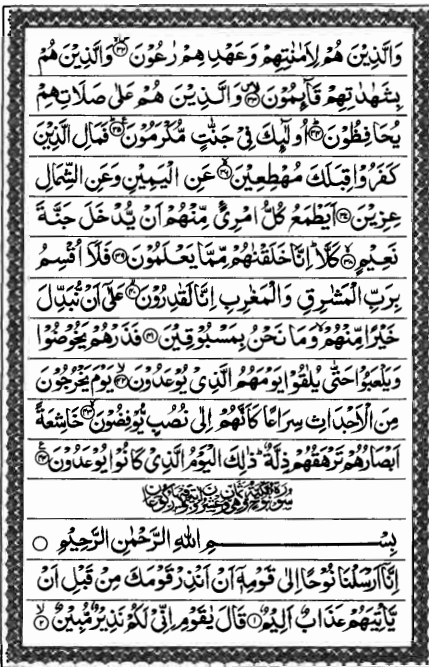 وَالَّذِيْنَ هُمْ لِاَمٰنٰتِهِمْ وَعَهْدِهِمْ رٰعُوْنَ ۝۳۲ وَالَّذِيْنَ هُمْ
بِشَهٰدٰتِهِمْ قَآىِٕمُوْنَ ۝۳۳ وَالَّذِيْنَ هُمْ عَلٰى صَلَاتِهِمْ
يُحَافِظُوْنَ ۝۳۴ اُولٰٓىِٕكَ فِيْ جَنّٰتٍ مُّكْرَمُوْنَ ۝۳۵ فَمَالِ الَّذِيْنَ
كَفَرُوْا قِبَلَكَ مُهْطِعِيْنَ ۝۳۶ عَنِ الْيَمِيْنِ وَعَنِ الشِّمَالِ
عِزِيْنَ ۝۳۷ اَيَطْمَعُ كُلُّ امْرِئٍ مِّنْهُمْ اَنْ يُّدْخَلَ جَنَّةَ
نَعِيْمٍ ۝۳۸ كَلَّا ؕ اِنَّا خَلَقْنٰهُمْ مِّمَّا يَعْلَمُوْنَ ۝۳۹ فَلَآ اُقْسِمُ
بِرَبِّ الْمَشٰرِقِ وَالْمَغٰرِبِ اِنَّا لَقٰدِرُوْنَ ۝۴۰ عَلٰٓى اَنْ نُّبَدِّلَ
خَيْرًا مِّنْهُمْ وَمَا نَحْنُ بِمَسْبُوْقِيْنَ ۝۴۱ فَذَرْهُمْ يَخُوْضُوْا
وَيَلْعَبُوْا حَتّٰى يُلٰقُوْا يَوْمَهُمُ الَّذِيْ يُوْعَدُوْنَ ۝۴۲ يَوْمَ يَخْرُجُوْنَ
مِنَ الْاَجْدَاثِ سِرَاعًا كَاَنَّهُمْ اِلٰى نُصُبٍ يُّوْفِضُوْنَ ۝۴۳ خَاشِعَةً
اَبْصَارُهُمْ تَرْهَقُهُمْ ذِلَّةٌ ؕ ذٰلِكَ الْيَوْمُ الَّذِيْ كَانُوْا يُوْعَدُوْنَ ۝۴۴
بِسْمِ اللهِ الرَّحْمٰنِ الرَّحِيْمِ ○
اِنَّآ اَرْسَلْنَا نُوْحًا اِلٰى قَوْمِهٖٓ اَنْ اَنْذِرْ قَوْمَكَ مِنْ قَبْلِ اَنْ
يَّاْتِيَهُمْ عَذَابٌ اَلِيْمٌ ۝۱ قَالَ يٰقَوْمِ اِنِّيْ لَكُمْ نَذِيْرٌ مُّبِيْنٌ ۝۲